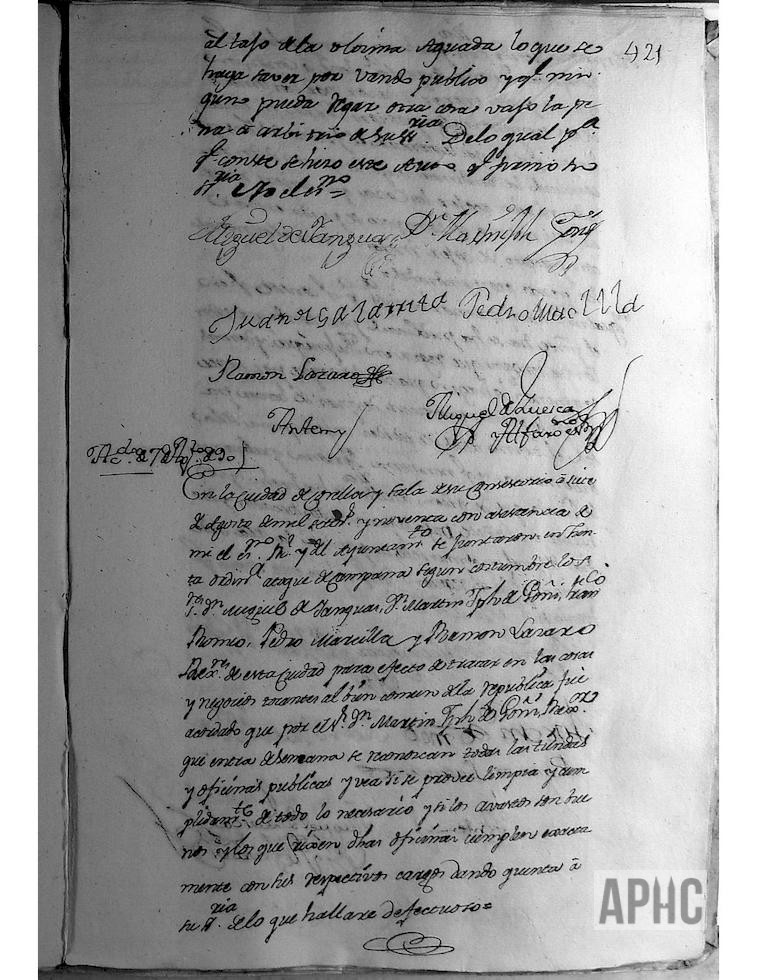 421
al taso de la olorima Aguada lo que se
haga saver por vando publico y q.e nin-
guno pueda vegar otra cosa vaso la pe-
na a arbitrio de su S.ria. De lo qual p.a
q.e conste se hizo este Auto q.e firmo su
S.ria e Yo el es.no =
Miguel de Yanguas D.n Martin Jph Goñi
Juan de Galarreta Pedro Marzilla
Ramon Lazaro
Antemy Miguel de Huesca
y Alfaro es.no
Ac.do de 7 de Ag.to de 90
En la Ciudad de Corella y Sala de su Consistorio a siete
de Agosto de mil setez.s y noventa con asistencia de
mi el es.no R.l y del Ayuntam.to se juntaron en Jun-
ta ordin.a a toque de Campana segun costumbre los S.
res D.n Miguel de Yanguas, D.n Martin Jph de Goñi, Fran.co
Romeo, Pedro Marcilla y Ramon Lazaro
Rex.res de esta Ciudad para efecto de tratar en las cosas
y negocios tocantes al bien comun de la republica fue
acordado que por el S.r D.n Martin Jph de Goñi, Rex.or
que entra de semana se reconozcan todas las tiendas
y oficinas publicas y vea si se provee limpia y cum-
plidam.te de todo lo necesario y si los avastos son bue
nos y los que sirven dhas oficinas cumplen exacta
mente con sus respectivos cargos dando quenta a
su S.ria de lo que hallare defectuoso =
APHC